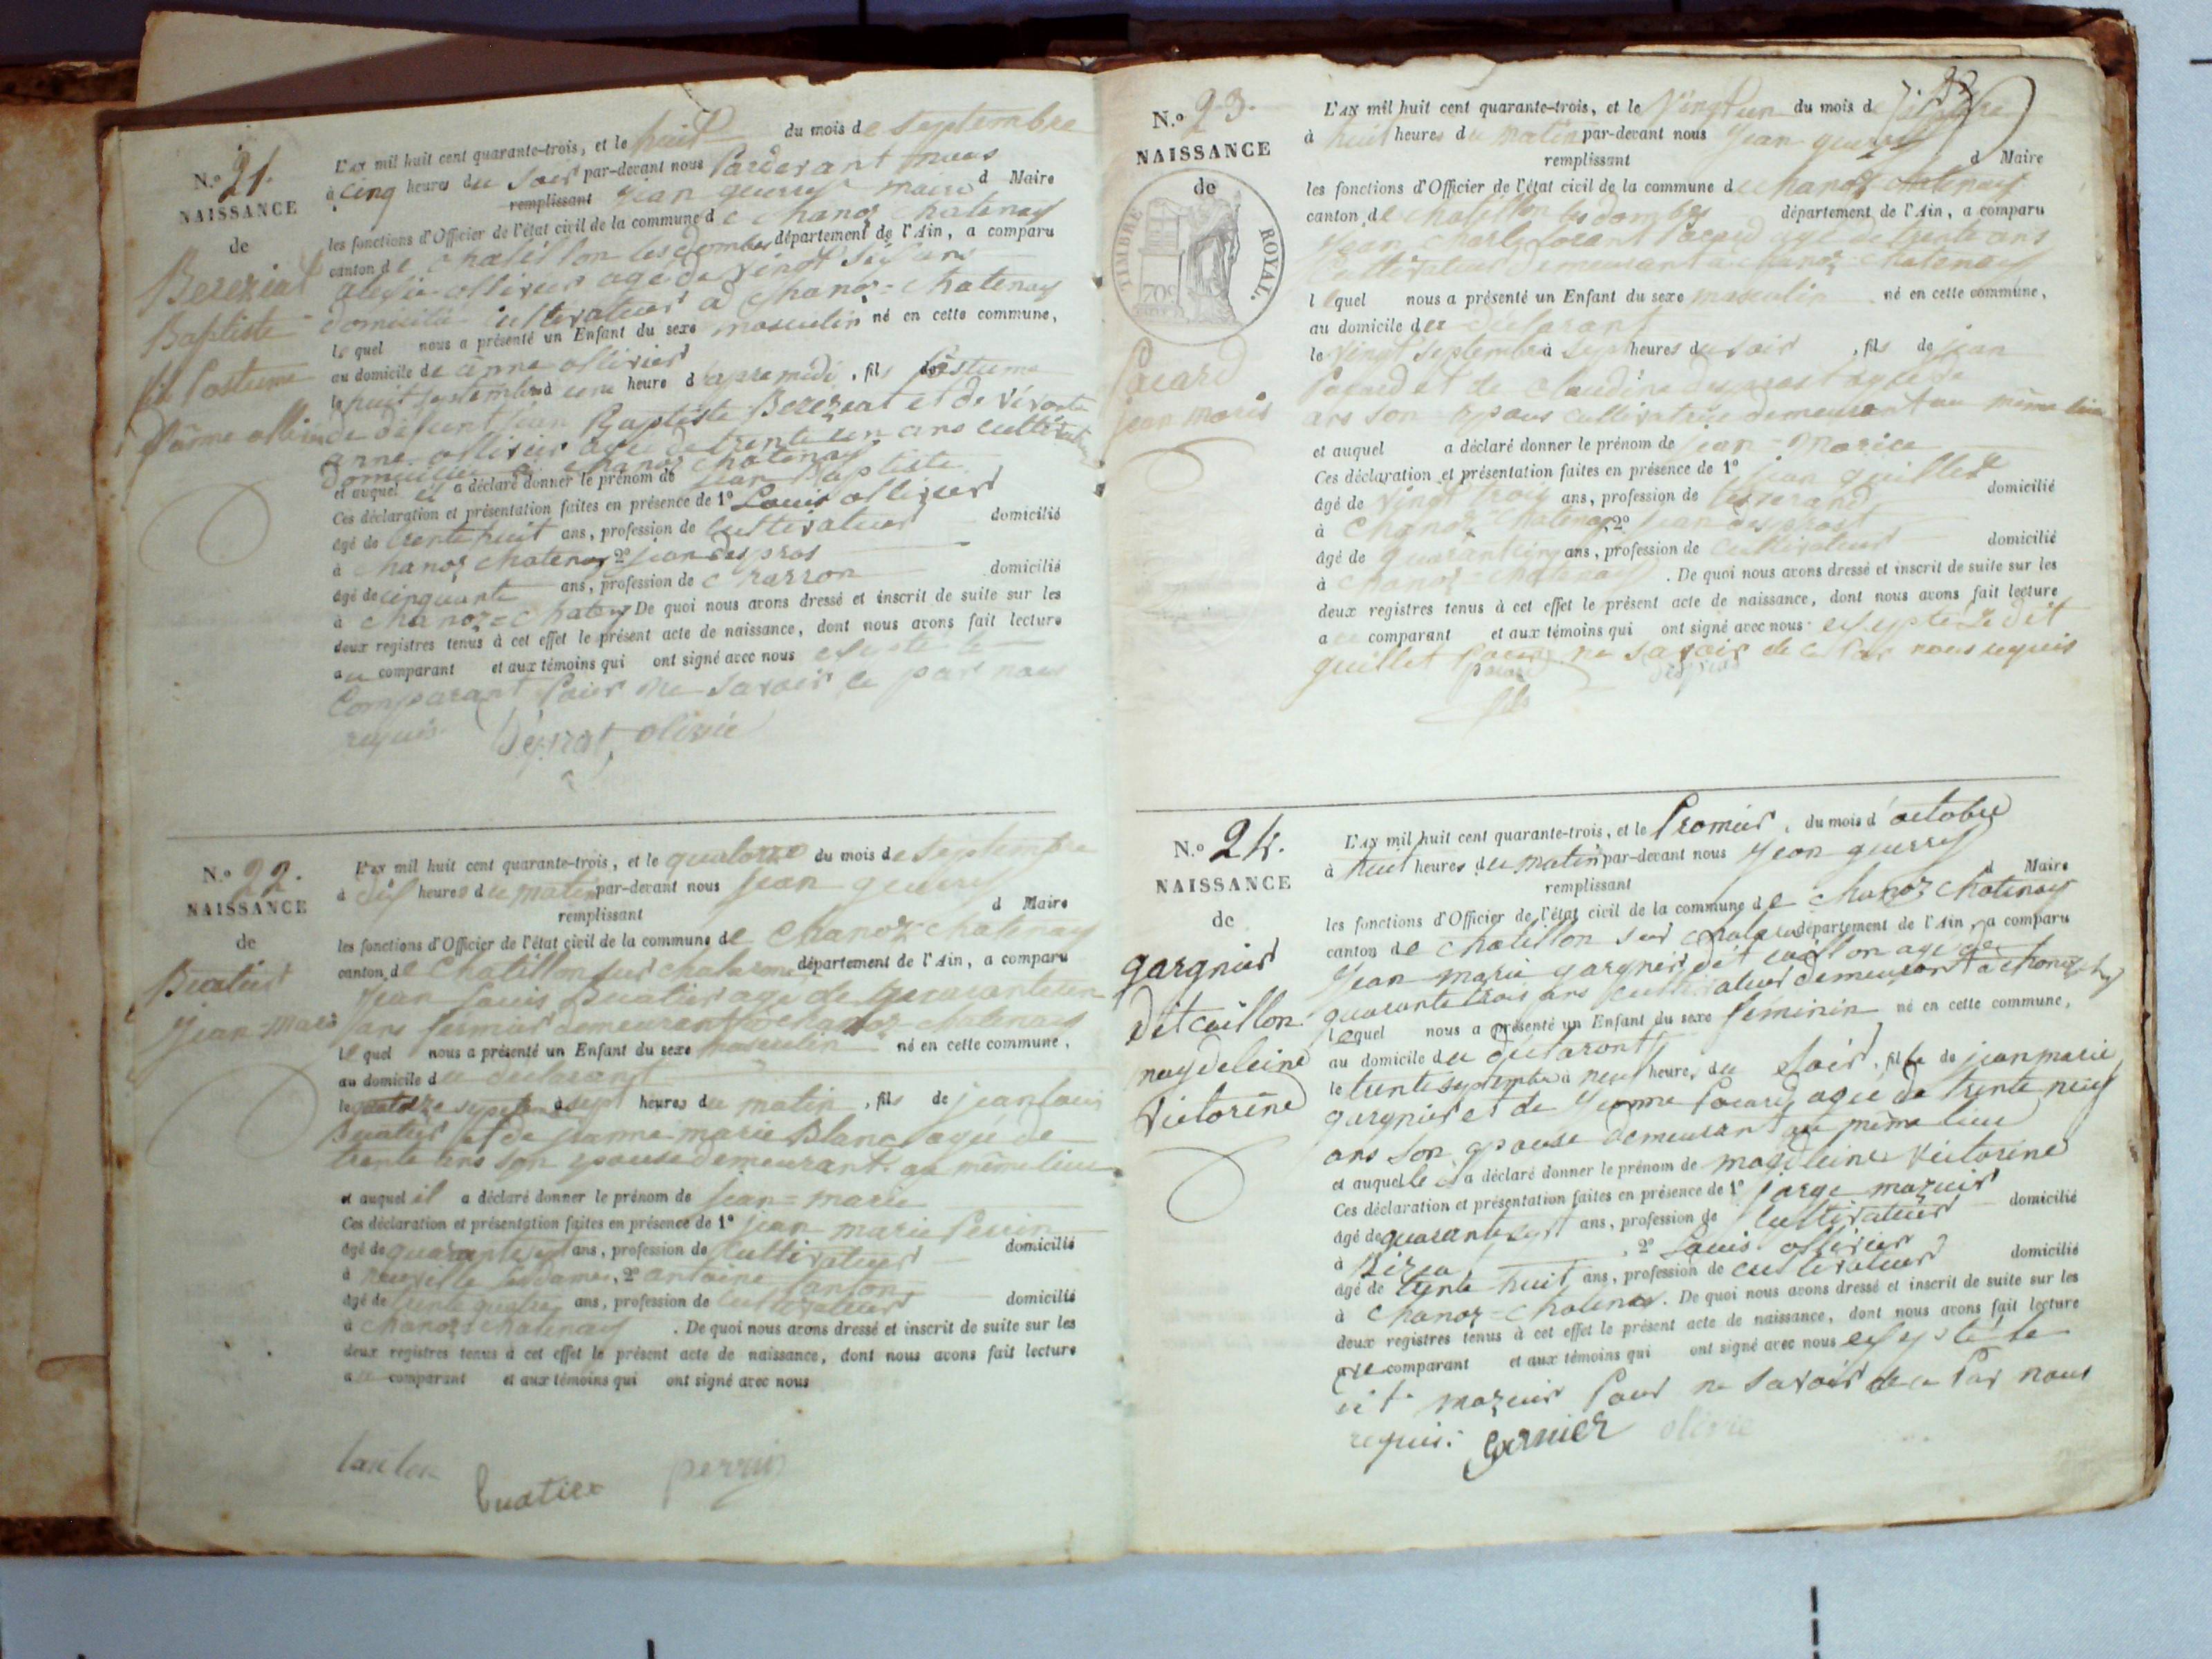 N.o 21.
NAISSANCE
de
Bereziat
Baptiste
fils Postume
L'AN mil huit cent quarante-trois, et le huit du mois de septembre
à cinq heures du soir par-devant nous Pardevant nous
remplissant jean guerry maire d Maire
les fonctions d'Officier de l'état civil de la commune de chanoz chatenay
canton de chatillon les dombes département de l'Ain, a comparu
ollivier agé de vingt six ans
domicilié cultivateur à chanoz-chatenay
lequel nous a présenté un Enfant du sexe masculin né en cette commune,
au domicile de anne ollivier
le huit septembre à une heure d apremidi, fils Postume
de défunt jean Baptiste Berezeat et de vivante
anne ollivier agée de trente un ans
domiciliée a chanoz chatenay
et auquel il a déclaré donner le prénom de jean Baptiste
Ces déclaration et présentation faites en présence de 1° Louis ollivier
âgé de trente huit ans, profession de cultivateur domicilié
à chanoz chatenay 2° jean despras
âgé de cinquante ans, profession de charron domicilié
à chanoz=chateny De quoi nous avons dressé et inscrit de suite sur les
deux registres tenus à cet effet le présent acte de naissance, dont nous avons fait lecture
au comparant et aux témoins qui ont signé avec nous excepté le
comparant pour ne savoir ce par nous
requis. olivié
N.o 22.
NAISSANCE
de
Buatier
jean=marie
L'AN mil huit cent quarante-trois, et le quatorze du mois de septembre
à dix heures du matin par-devant nous jean guerry
remplissant d Maire
les fonctions d'Officier de l'état civil de la commune de chanoz chatenay
canton de Chatillon sur chalaronne département de l'Ain, a comparu
jean Louis Buatier agé de quarante un
ans fermier demeurant à chanoz-chatenay
lequel nous a présenté un Enfant du sexe masculin né en cette commune,
au domicile du declarant
le quatorze septembre à sept heures du matin, fils de jean louis
Buatier et de jeanne marie Blanc agée de
trente ans son epouse demeurant au même lieu
et auquel il a déclaré donner le prénom de jean=marie
Ces déclaration et présentation faites en présence de 1° jean marie Perrin
âgé de quarante sept ans, profession de cultivateur domicilié
à neuville les dames, 2° antoine Lanton
âgé de trente quatre ans, profession de cultivateur domicilié
à chanoz=chatenay. De quoi nous avons dressé et inscrit de suite sur les
deux registres tenus à cet effet le présent acte de naissance, dont nous avons fait lecture
au comparant et aux témoins qui ont signé avec nous
lanton buatier perrin
N.o 23.
NAISSANCE
de
TIMBRE ROYAL.
70c
Pacard
jean marie
L'AN mil huit cent quarante-trois, et le Vingt un du mois de
à huit heures du matin par-devant nous jean guerry
remplissant d Maire
les fonctions d'Officier de l'état civil de la commune de chanoz chatenay
canton de chatillon les dombes département de l'Ain, a comparu
jean Pacard agé de trente ans
cultivateur demeurant à chanoz-chatenay
lequel nous a présenté un Enfant du sexe masculin né en cette commune,
au domicile du déclarant
le vingt septembre à sept heures du soir, fils de jean
Pacard et de claudine agée de
ans son epouse cultivatrice demeurant au même lieu
et auquel a déclaré donner le prénom de jean=Marie
Ces déclaration et présentation faites en présence de 1° jean guillet
âgé de vingt trois ans, profession de domicilié
à Chanoz chatenay, 2° jean desprost
âgé de quarante cinq ans, profession de cultivateur domicilié
à chanoz-chatenay. De quoi nous avons dressé et inscrit de suite sur les
deux registres tenus à cet effet le présent acte de naissance, dont nous avons fait lecture
au comparant et aux témoins qui ont signé avec nous excepté le dit
guillet pour ne savoir de ce Par nous requis
N.o 24.
NAISSANCE
de
gargnier
dit caillon
magdeleine
Victorine
L'AN mil huit cent quarante-trois, et le Premier, du mois d'octobre
à huit heures du matin par-devant nous jean guerry
remplissant d Maire
les fonctions d'Officier de l'état civil de la commune de chanoz chatenay
canton de chatillon sur chalar département de l'Ain, a comparu
jean marie gargnier dit caillon agé de
quarante trois ans cultivateur demeurant à chanoz-
lequel nous a présenté un Enfant du sexe féminin né en cette commune,
au domicile du déclarant
le trente septembre à neuf heures du soir, fille de jean marie
gargnier et de Pacard agée de trente neuf
ans son epouse demeurant au même lieu
et auquel le il a déclaré donner le prénom de magdleine victorine
Ces déclaration et présentation faites en présence de 1° jorge mazuir
âgé de quarante sept ans, profession de cultivateur domicilié
à Biziat, 2° Louis ollivier
âgé de trente huit ans, profession de cultivateur domicilié
à chanoz=chatenay. De quoi nous avons dressé et inscrit de suite sur les
deux registres tenus à cet effet le présent acte de naissance, dont nous avons fait lecture
comparant et aux témoins qui ont signé avec nous excepté le
dit mazuir Pour ne savoir de ce Par nous
requis. garnier olivie